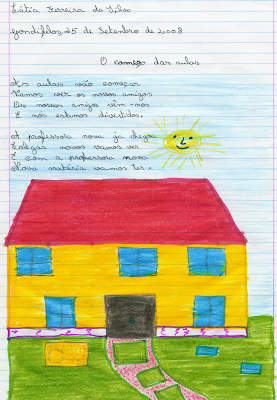 Cátia Ferreira da Silva
Gondifelos, 25 de Setembro de 2008
O começo das aulas
As aulas vão começar
Vamos ver os novos amigos
Os nossos amigos vêm-nos
E nós estamos divertidos.
A professora nova já chega
Colegas novos vamos ver
E com a professora nova
Nova matéria vamos ter.